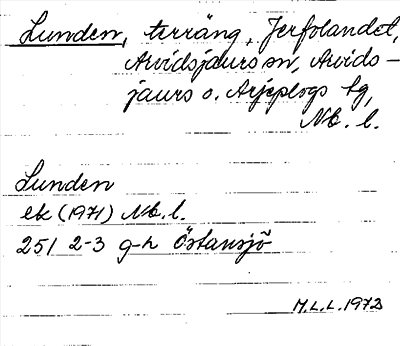 Lunden, terräng, Jerfolandet,
Arvidsjaurs sn, Arvids-
jaurs o. Arjeplogs tg,
Nb. l.
Lunden
ek (1971) Nb. l.
251 2-3 g-h Östansjö
M.L.L. 1973